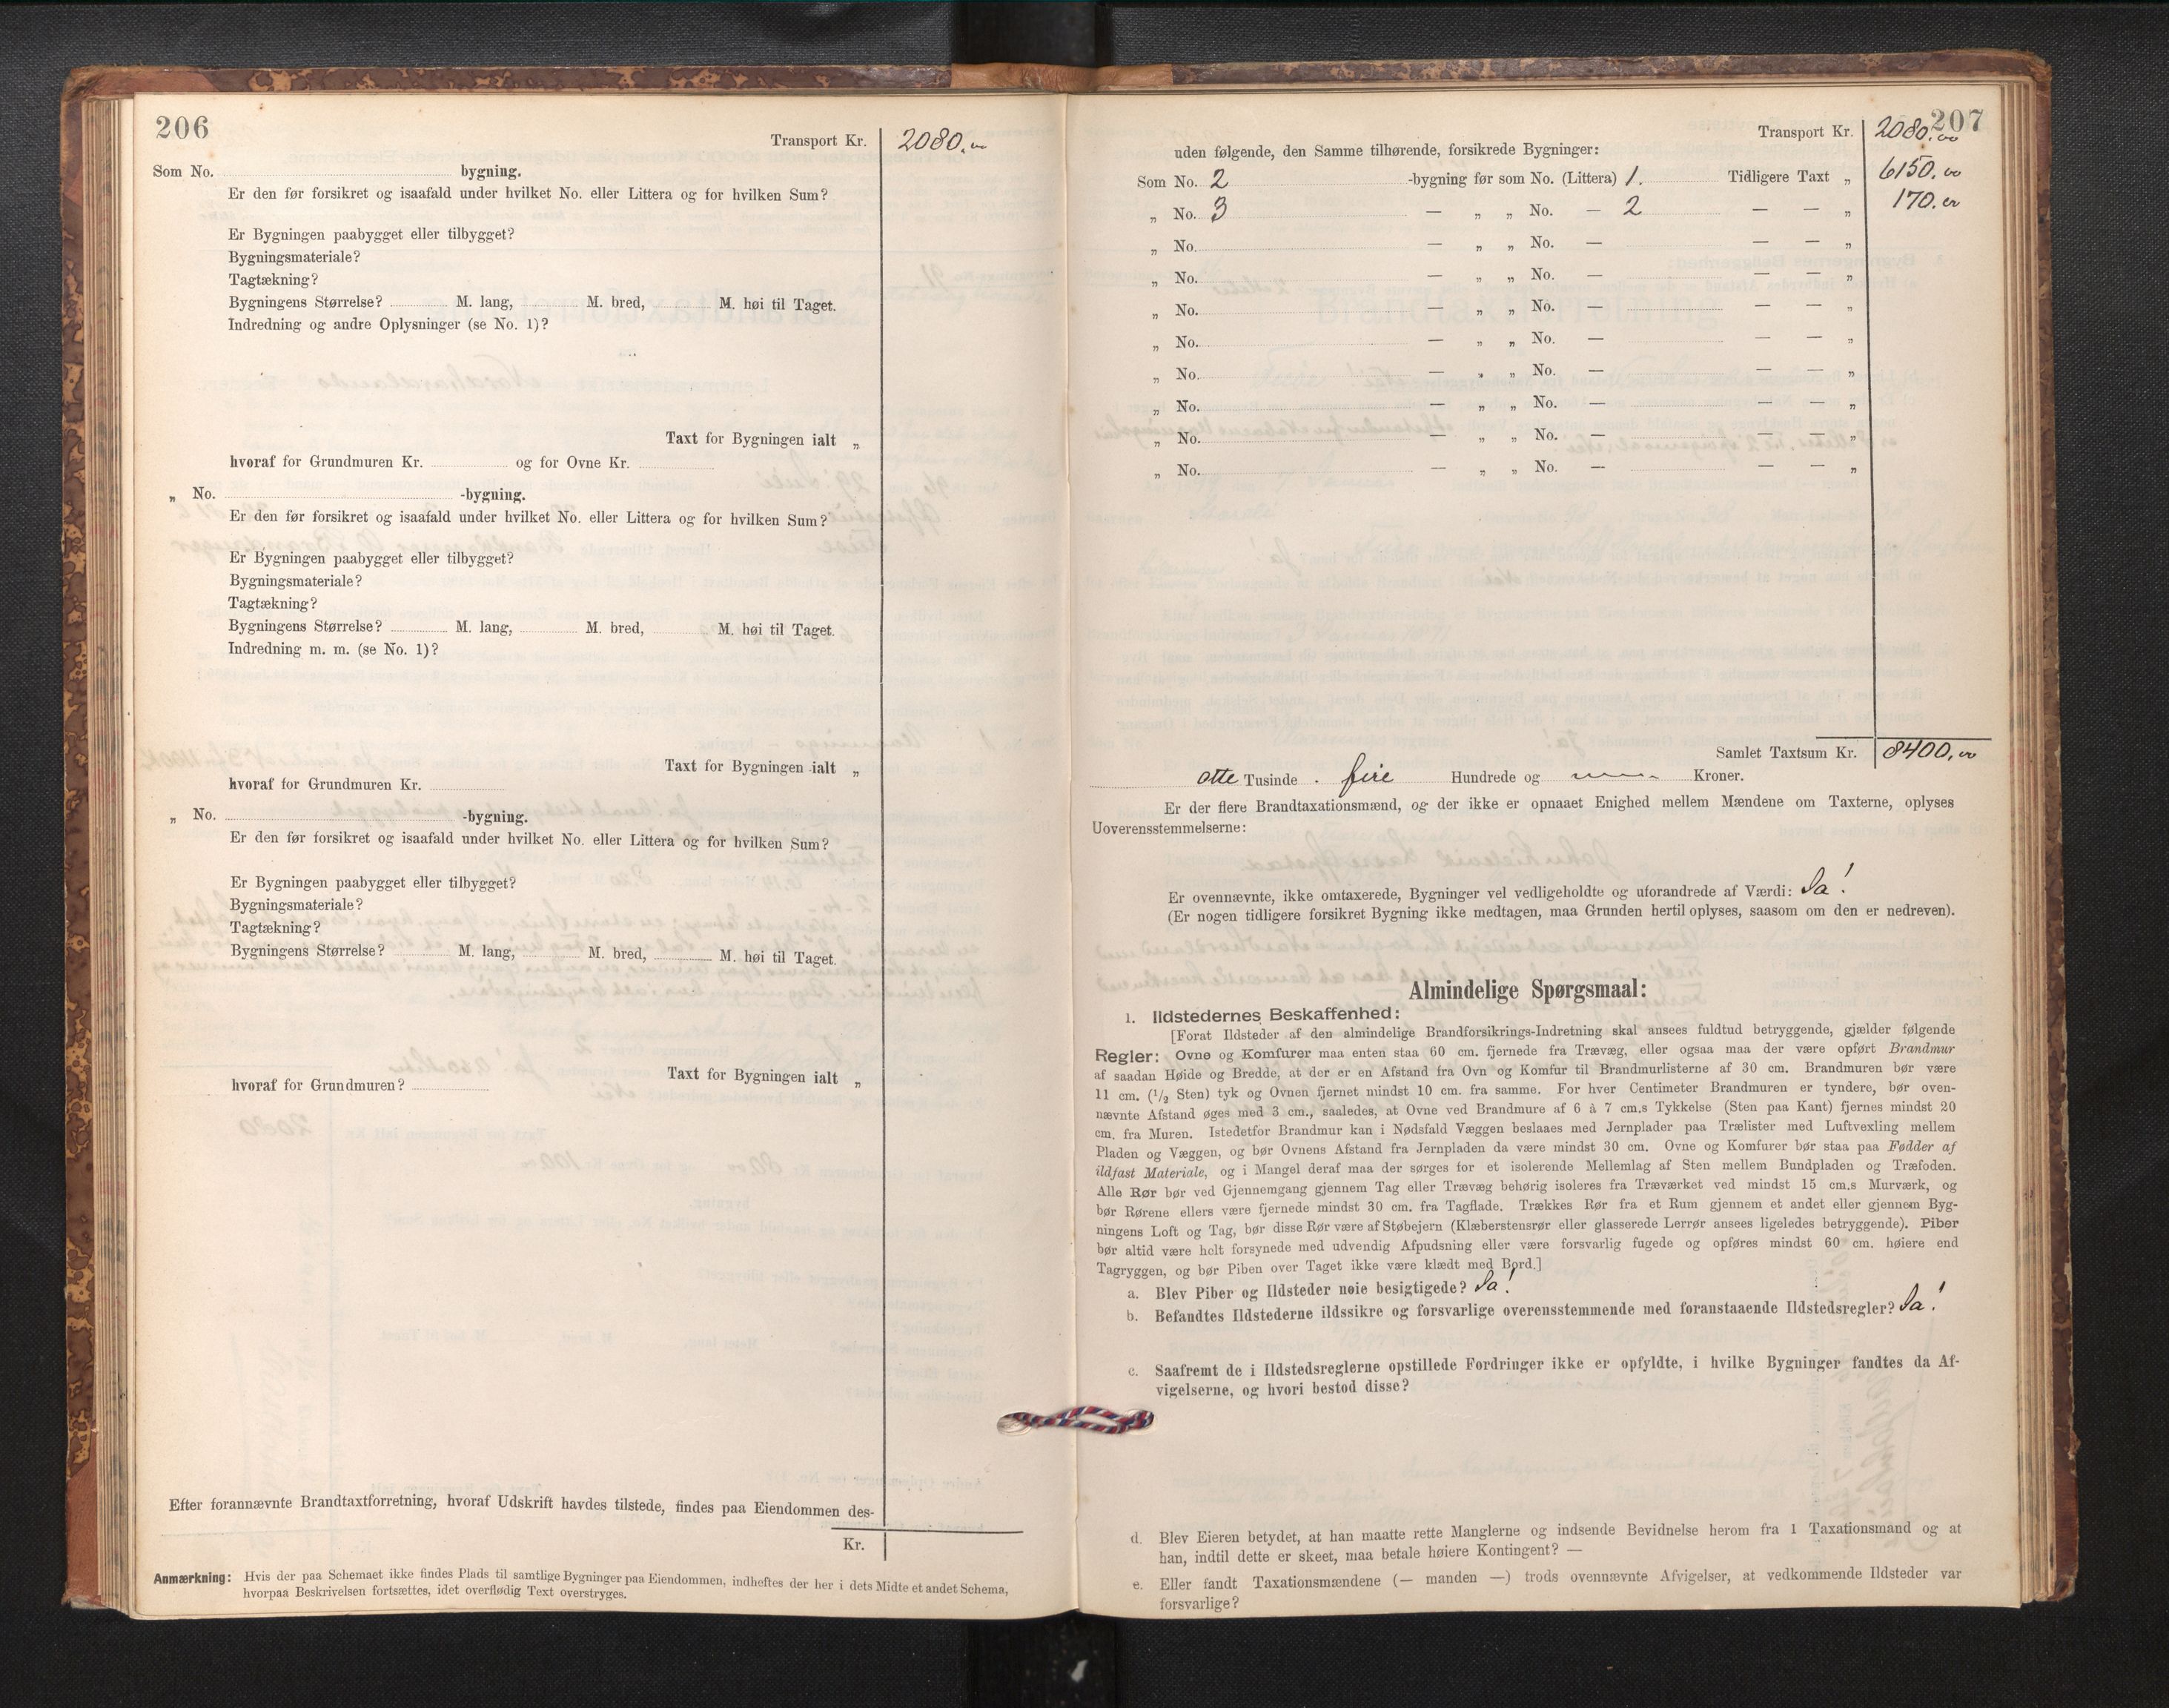 206
Transport Kr. 2080.00
Som No. bygning.
Er den før forsikret og isaafald under hvilket No. eller Littera og for hvilken Sum?
Er Bygningen paabygget eller tilbygget?
Bygningsmateriale?
Tagtækning?
Bygningens Størrelse? M. lang, M. bred, M. høi til Taget.
Indredning og andre Oplysninger (se No. 1)?
Taxt for Bygningen ialt „
hvoraf for Grundmuren Kr. og for Ovne Kr.
„ No. -bygning.
Er den før forsikret og isaafald under hvilket No. eller Littera og for hvilken Sum?
Er Bygningen paabygget eller tilbygget?
Bygningsmateriale?
Tagtækning?
Bygningens Størrelse? M. lang, M. bred, M. høi til Taget.
Indredning m. m. (se No. 1)?
Taxt for Bygningen ialt „
hvoraf for Grundmuren Kr.
„ No. -bygning.
Er den før forsikret og isaafald under hvilket No. eller Littera og for hvilken Sum?
Er Bygningen paabygget eller tilbygget?
Bygningsmateriale?
Tagtækning?
Bygningens Størrelse? M. lang, M. bred, M. høi til Taget.
Taxt for Bygningen ialt „
hvoraf for Grundmuren?
Efter forannævnte Brandtaxtforretning, hvoraf Udskrift havdes tilstede, findes paa Eiendommen des-
Kr.
Anmærkning: Hvis der paa Schemaet ikke findes Plads til samtlige Bygninger paa Eiendommen, indheftes der her i dets Midte et andet Schema,
hvorpaa Beskrivelsen fortsættes, idet overflødig Text overstryges.
207
Transport Kr. 2080.00
uden følgende, den Samme tilhørende, forsikrede Bygninger:
Som No. 2 -bygning før som No. (Littera) 1. Tidligere Taxt „ 6150.00
„ No. 3 — „ „ No. — 2 — — „ 170.00
„ No. — „ „ No. — — — „
„ No. — „ „ No. — — — „
„ No. — „ „ No. — — — „
„ No. — „ „ No. — — — „
„ No. — „ „ No. — — — „
„ No. — „ „ No. — — — „
„ No. — „ „ No. — — — „
„ No. — „ „ No. — — — „
Samlet Taxtsum Kr. 8400.00
otte Tusinde . fire Hundrede og Kroner.
Er der flere Brandtaxationsmænd, og der ikke er opnaaet Enighed mellem Mændene om Taxterne, oplyses
Uoverensstemmelserne:
Er ovennævnte, ikke omtaxerede, Bygninger vel vedligeholdte og uforandrede af Værdi: Ja!
(Er nogen tidligere forsikret Bygning ikke medtagen, maa Grunden hertil oplyses, saasom om den er nedreven).
Almindelige Spørgsmaal:
1. Ildstedernes Beskaffenhed:
[Forat Ildsteder af den almindelige Brandforsikrings-Indretning skal ansees fuldtud betryggende, gjælder følgende
Regler: Ovne og Komfurer maa enten staa 60 cm. fjernede fra Trævæg, eller ogsaa maa der være opført Brandmur
af saadan Høide og Bredde, at der er en Afstand fra Ovn og Komfur til Brandmurlisterne af 30 cm. Brandmuren bør være
11 cm. (1/2 Sten) tyk og Ovnen fjernet mindst 10 cm. fra samme. For hver Centimeter Brandmuren er tyndere, bør oven-
nævnte Afstand øges med 3 cm., saaledes, at Ovne ved Brandmure af 6 à 7 cm.s Tykkelse (Sten paa Kant) fjernes mindst 20
cm. fra Muren. Istedetfor Brandmur kan i Nødsfald Væggen beslaaes med Jernplader paa Trælister med Luftvexling mellem
Pladen og Væggen, og bør Ovnens Afstand fra Jernpladen da være mindst 30 cm. Ovne og Komfurer bør staa paa Fødder af
ildfast Materiale, og i Mangel deraf maa der sørges for et isolerende Mellemlag af Sten mellem Bundpladen og Træfoden.
Alle Rør bør ved Gjennemgang gjennem Tag eller Trævæg behørig isoleres fra Træværket ved mindst 15 cm.s Murværk, og
bør Rørene ellers være fjernede mindst 30 cm. fra Tagflade. Trækkes Rør fra et Rum gjennem et andet eller gjennem Byg-
ningens Loft og Tag, bør disse Rør være af Støbejern (Klæberstensrør eller glasserede Lerrør ansees ligeledes betryggende). Piber
bør altid være helt forsynede med udvendig Afpudsning eller være forsvarlig fugede og opføres mindst 60 cm. høiere end
Tagryggen, og bør Piben over Taget ikke være klædt med Bord.]
a. Blev Piber og Ildsteder nøie besigtigede? Ja!
b. Befandtes Ildstederne ildssikre og forsvarlige overensstemmende med foranstaaende Ildstedsregler? Ja!
c. Saafremt de i Ildstedsreglerne opstillede Fordringer ikke er opfyldte, i hvilke Bygninger fandtes da Af-
vigelserne, og hvori bestod disse?
d. Blev Eieren betydet, at han maatte rette Manglerne og indsende Bevidnelse herom fra 1 Taxationsmand og at
han, indtil dette er skeet, maa betale høiere Kontingent? —
e. Eller fandt Taxationsmændene (— manden —) trods ovennævnte Afvigelser, at vedkommende Ildsteder var
forsvarlige?